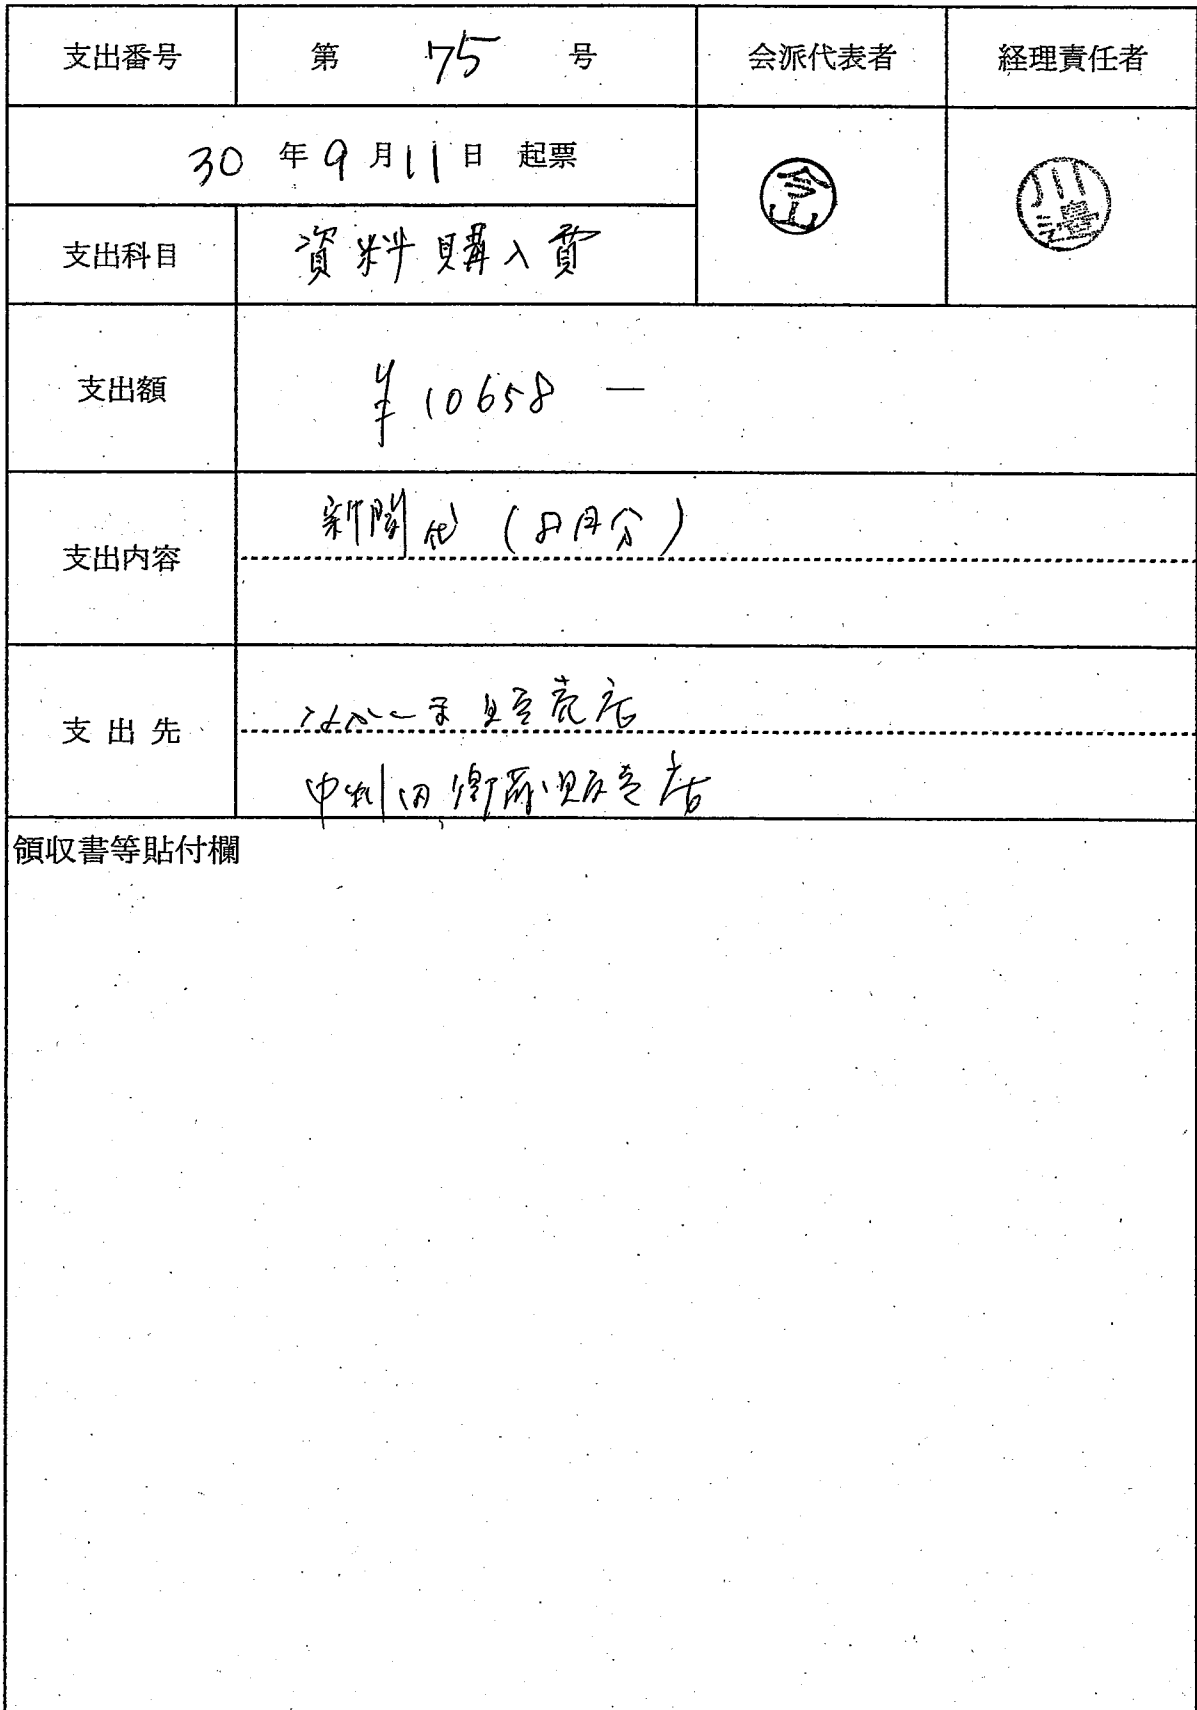 支出番号 第 75 号 会派代表者 経理責任者
30 年 9 月 11 日 起票
今山
川邊
支出科目 資料購入費
支出額 ¥10658 —
支出内容 新聞代 (8月分)
支出先
販売店
販売店
領収書等貼付欄